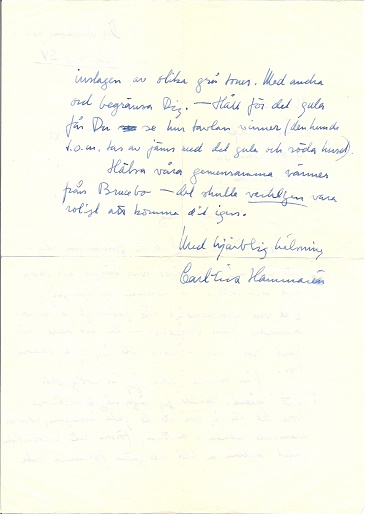 inslagen av olika grå toner. Med andra
ord begränsa Dig. — Håll för det gula
får Du se hur tavlan vinner (den kunde
t.o.m. tas av jäms med det gula och röda huset).
Hälsa våra gemensamma vänner
från Brucebo — det skulle verkligen vara
roligt att komma dit igen.
Med hjärtlig hälsning
Carl-Eiva Hammarén